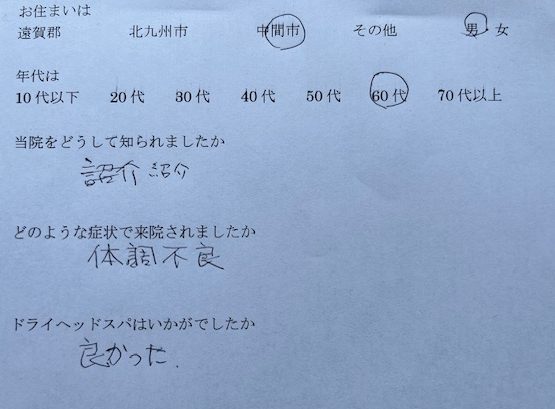 お住まいは
遠賀郡 北九州市 中間市 その他 男・女
年代は
10代以下 20代 30代 40代 50代 60代 70代以上
当院をどうして知られましたか
詔介 紹介
どのような症状で来院されましたか
体調不良
ドライヘッドスパはいかがでしたか
良かった.